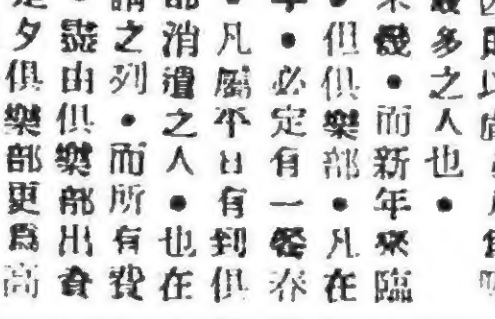 多之人也●
幾●而新年來臨
●但俱樂部●凡在
●必定有一餐春
●凡屬平日有到俱
部消遣之人●也在
請之列●而所有費
●盡由俱樂部出資
夕俱樂部更爲高